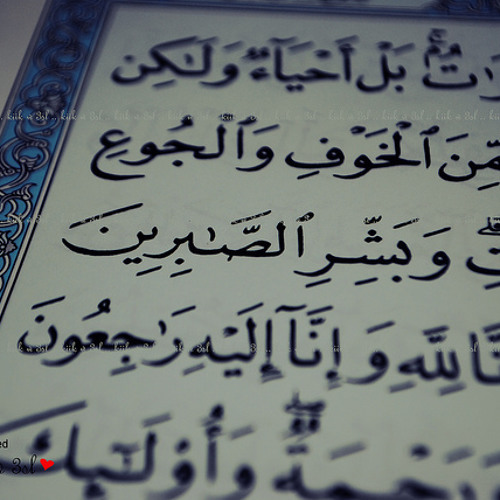 بَلْ أَحْيَآءٌ وَلَٰكِن
مِّنَ ٱلْخَوْفِ وَٱلْجُوعِ
وَبَشِّرِ ٱلصَّٰبِرِينَ
لِلَّهِ وَإِنَّآ إِلَيْهِ رَٰجِعُونَ
وَرَحْمَةٌ ۖ وَأُو۟لَٰٓئِكَ